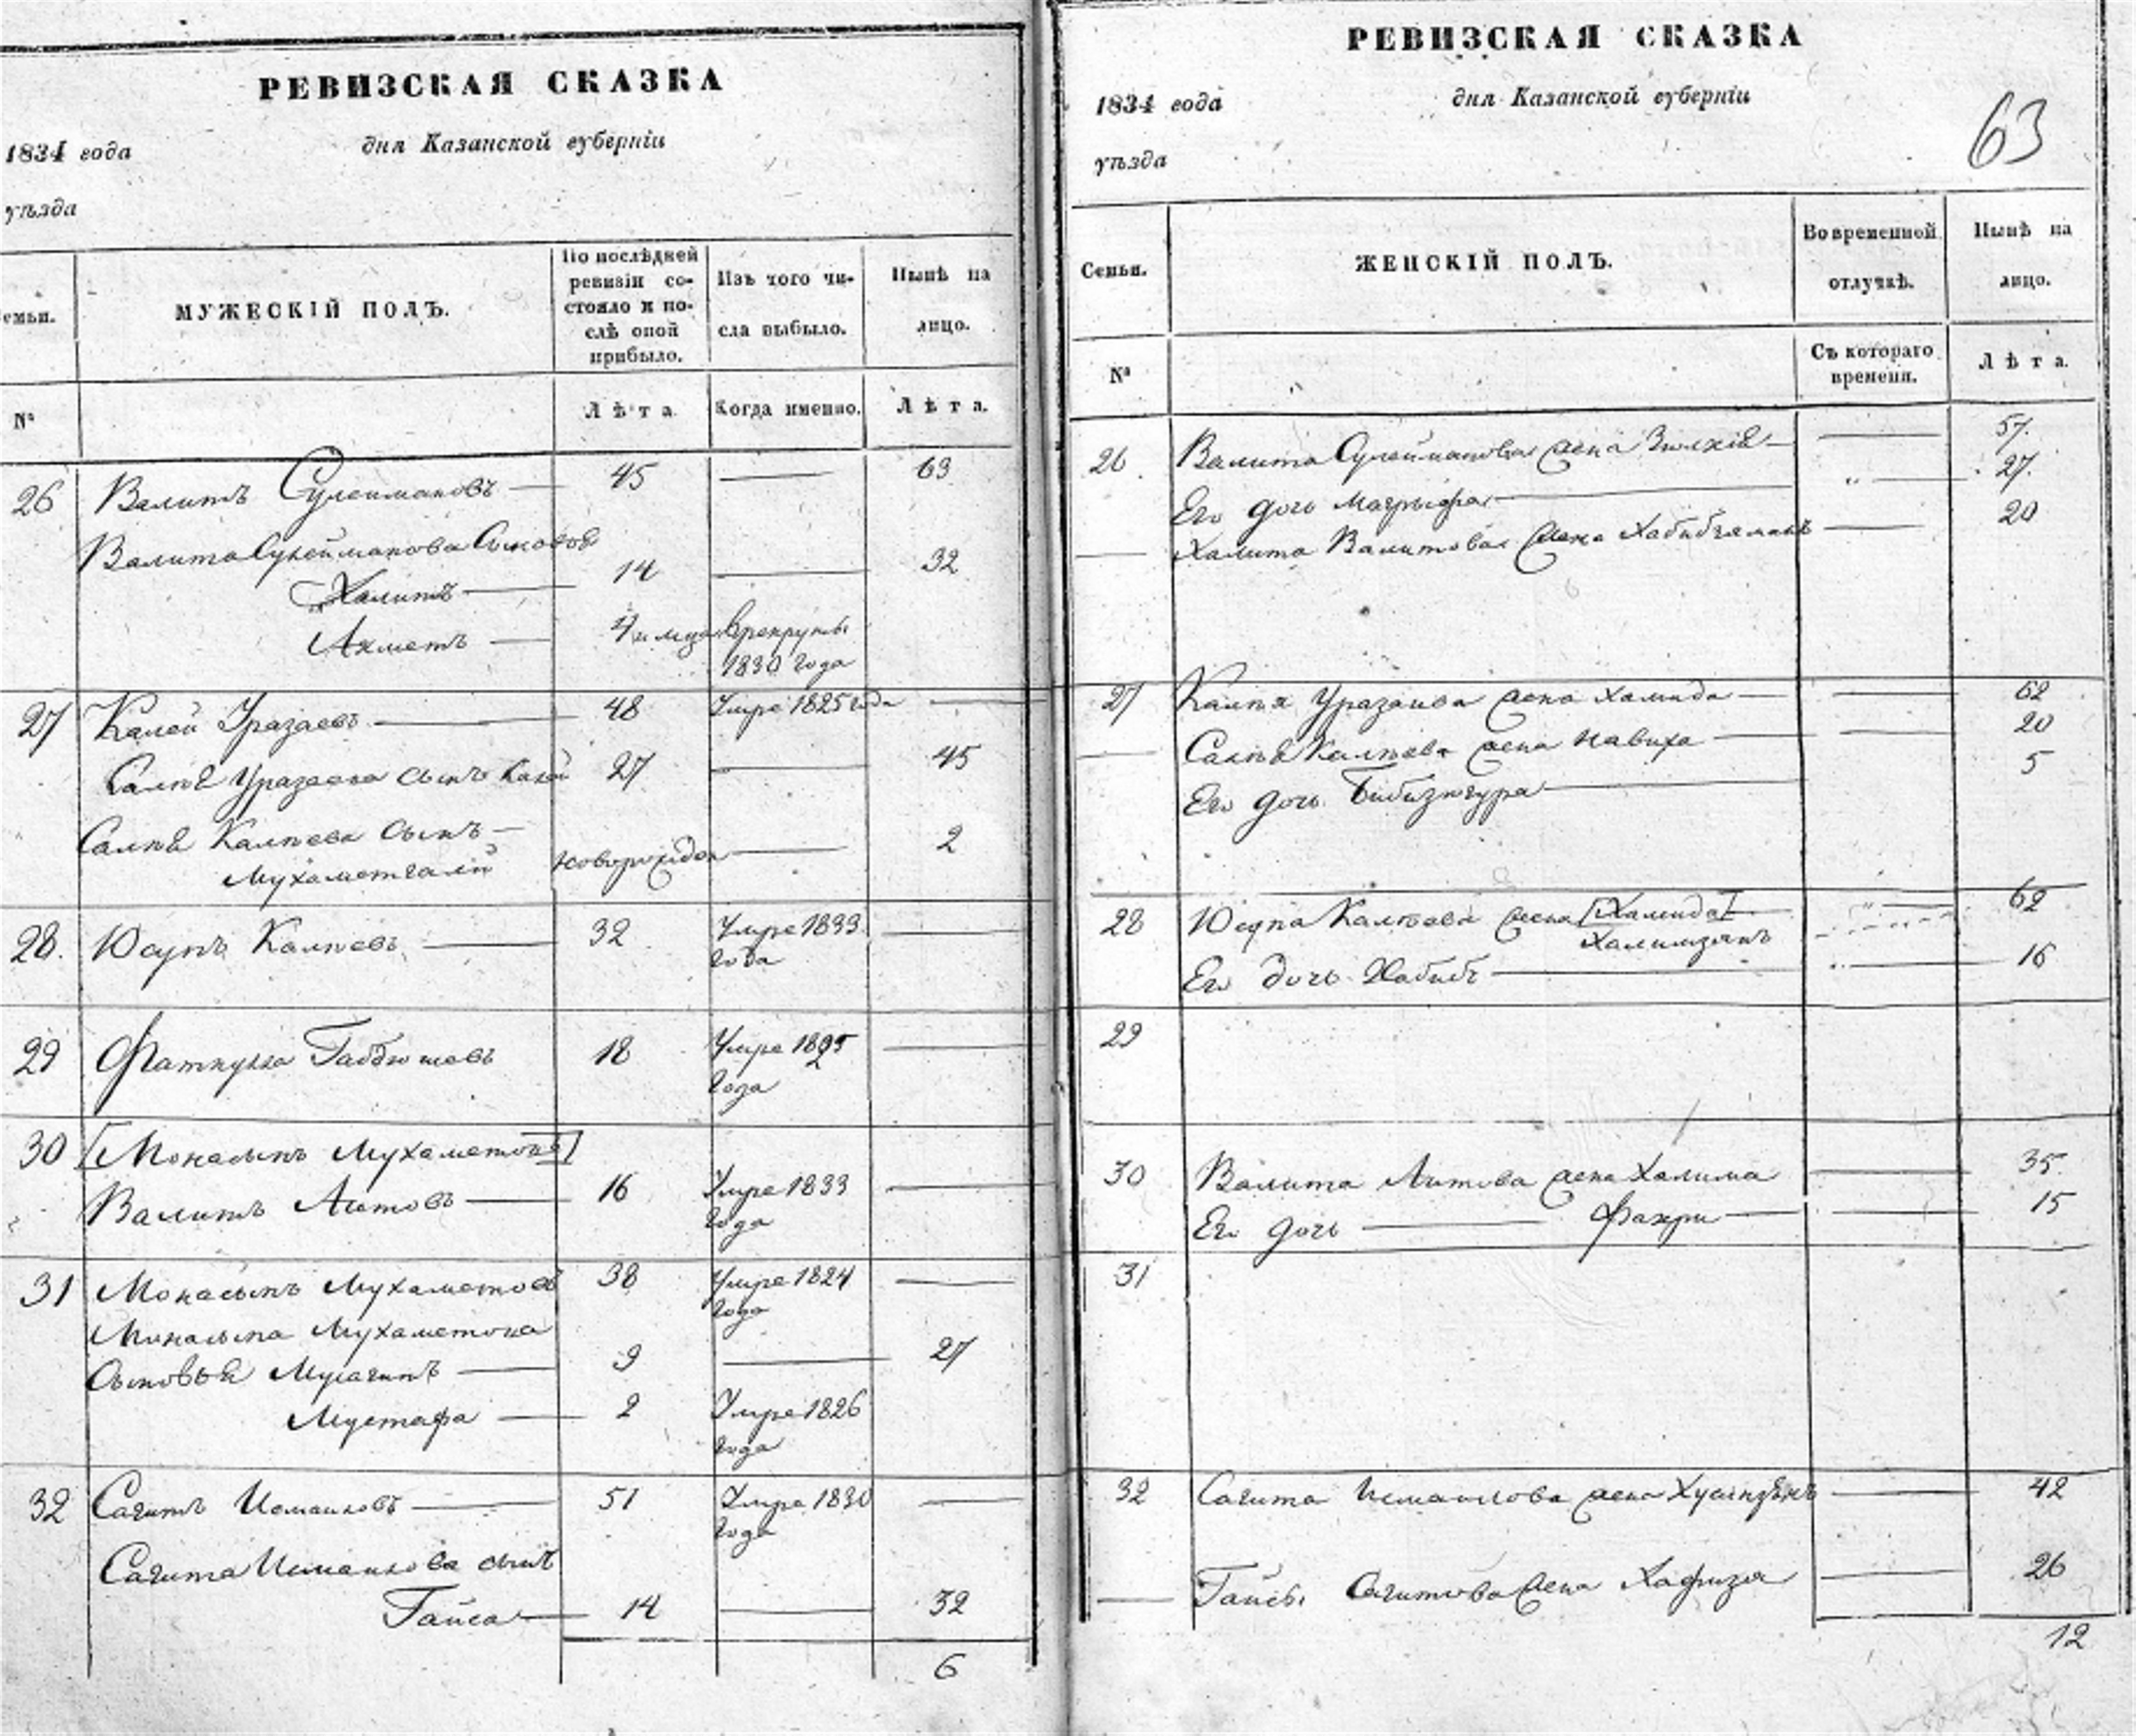 РЕВИЗСКАЯ СКАЗКА
1834 года
дня Казанской губерніи
уѣзда
Семьи.
МУЖЕСКІЙ ПОЛЪ.
По послѣдней
ревизіи со-
стояло и по-
слѣ оной
прибыло.
Изъ того чи-
сла выбыло.
Нынѣ на
лицо.
№
Лѣта
Когда именно.
Лѣта.
26 Валитъ Сулеимановъ 45 63
Валита Сулейманова Сыновья
Халитъ 14 32
Ахметъ 4 врекруты
1830 года
27 Калей Уразаевъ 48 Умре 1825 года
Уразаева сынъ 27 45
Калѣева Сынъ
Мухаметгалій новорожден 2
28. Юсупъ Калѣевъ 32 Умре 1833
года
29 Фаткулла 18 Умре 1825
года
30 [Монасыпъ Мухаметовъ]
Валитъ Аитовъ 16 Умре 1833
года
31 Монасыпъ Мухаметовъ 38 Умре 1824
года
Монасыпа Мухаметова
Сыновья 9 27
Мустафа 2 Умре 1826
года
32 Сагитъ Исмаиловъ 51 Умре 1830
года
Сагита Исмаилова сынъ
Гайса 14 32
6
РЕВИЗСКАЯ СКАЗКА
1834 года
дня Казанской губерніи
63
уѣзда
Семьи.
ЖЕНСКІЙ ПОЛЪ.
Во временной
отлучкѣ.
Нынѣ на
лицо.
№
Съ котораго
времени.
Лѣта.
26 Валита Сулейманова жена 57.
Его дочь Магрыфа 27.
Халита Валитова жена Хабибзяманъ 20
27 Уразаива жена Хамида 62
Калѣева жена Навиха 20
Его дочь Бибизюгура 5
28 Юсупа Калѣева жена [Хамида] 62
Халимзянъ
Его дочь Хабибъ 16
29
30 Валита Аитова жена Халима 35
Его дочь Фахри 15
31
32 Сагита Исмаилова жена 42
Гайсы Сагитова жена Хафиза 26
12